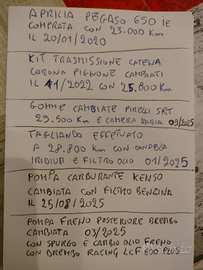 APRILIA PEGASO 650 ie
COMPRATA CON 23.000 Km
IL 20/01/2020
KIT TRASMISSIONE CATENA
CORONA PIGNONE CAMBIATI
IL 11/2022 CON 25.800 Km
GOMME CAMBIATE PIRELLI SRT
29.500 Km E CAMERA D'ARIA 03/2025
TAGLIANDO EFFETTUATO
A 28.800 Km CON CANDELA
IRIDIUM E FILTRO OLIO 01/2025
POMPA CARBURANTE KENSO
CAMBIATA CON FILTRO BENZINA
IL 25/08/2025
POMPA FRENO POSTERIORE BREMBO
CAMBIATA 03/2025
CON SPURGO E CAMBIO OLIO FRENO
CON BREMBO RACING LCF 600 PLUS